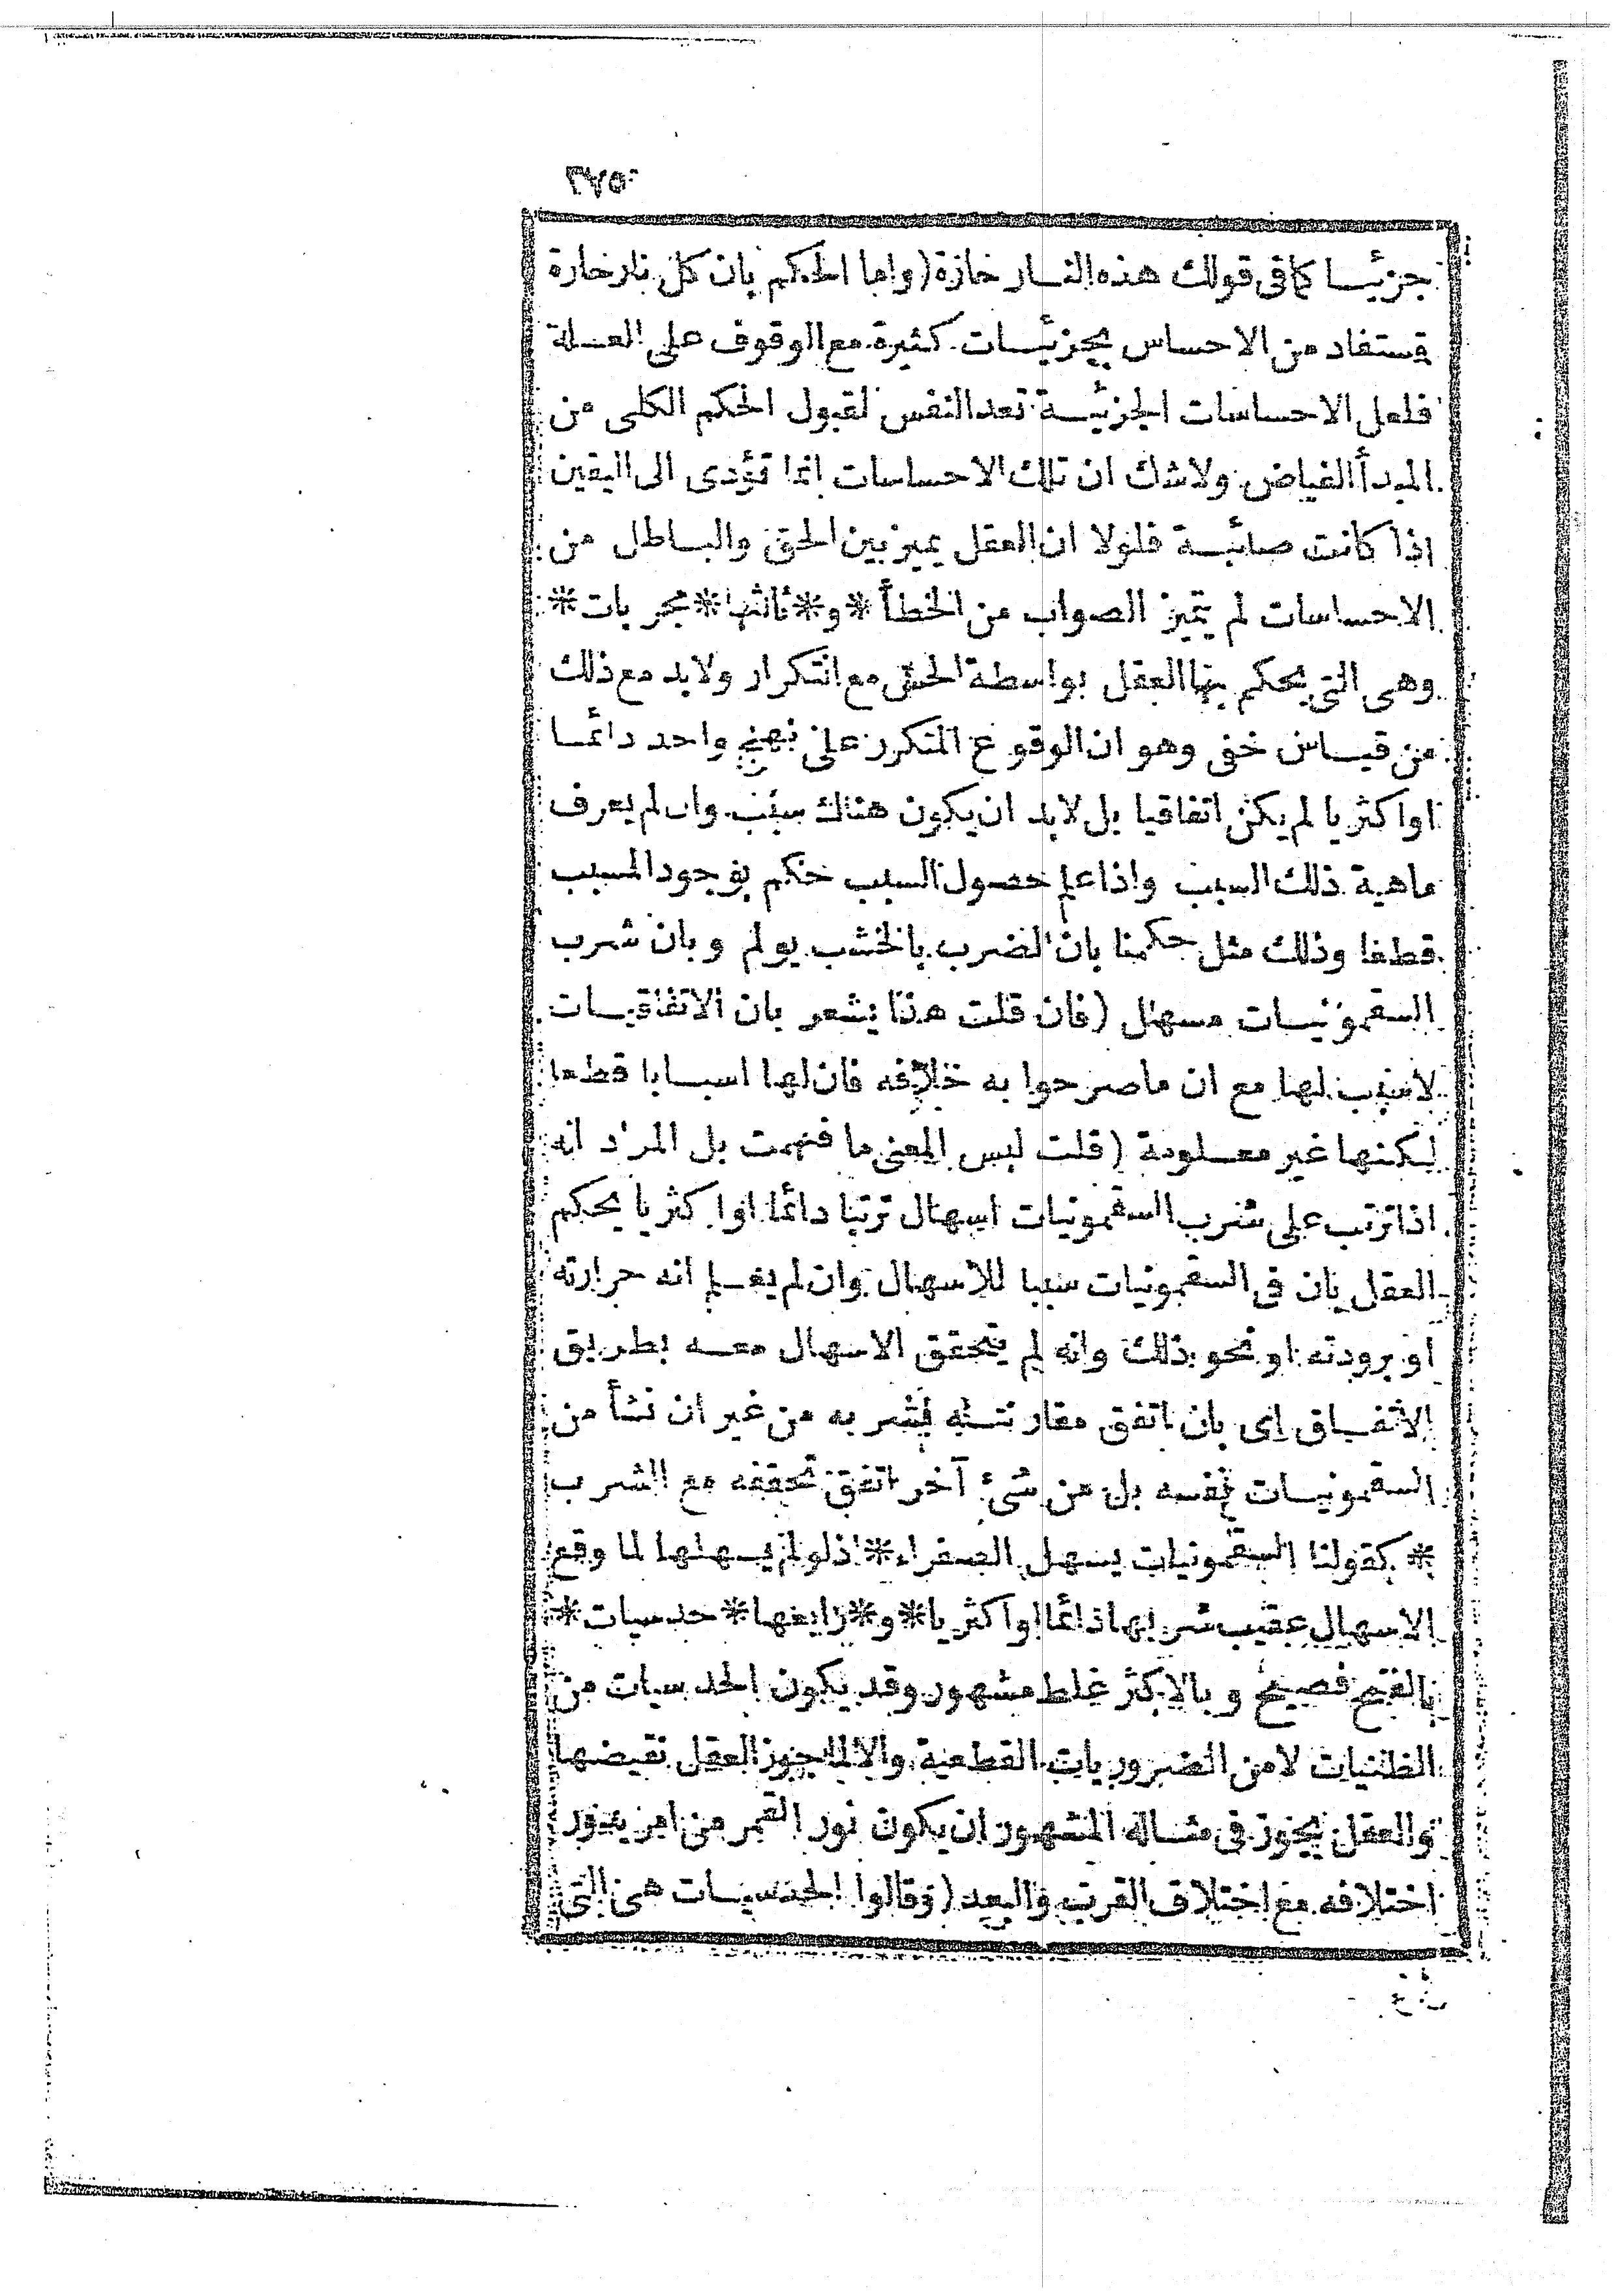 ٢٧٥
جزئيا كما فى قولك هذه النار حارة (واما الحكم بان كل نار حارة
فمستفاد من الاحساس بجزئيات كثيرة مع الوقوف على العلة
فلعل الاحساسات الجزئية تعد النفس لقبول الحكم الكلى من
المبدأ الفياض ولاشك ان تلك الاحساسات انما تؤدى الى اليقين
اذا كانت صائبة فلولا ان العقل يميز بين الحق والباطل من
الاحساسات لم يتميز الصواب من الخطأ * و * ثالثها * مجربات *
وهى التى يحكم بها العقل بواسطة الحس مع التكرار ولابد مع ذلك
من قياس خفى وهو ان الوقوع المتكرر على نهج واحد دائما
او اكثريا لم يكن اتفاقيا بل لابد ان يكون هناك سبب وان لم يعرف
ماهية ذلك السبب واذا علم حصول السبب حكم بوجود المسبب
قطعا وذلك مثل حكمنا بان الضرب بالخشب يولم وبان شرب
السقمونيات مسهل (فان قلت هذا يشعر بان الاتفاقيات
لاسبب لها مع ان ماصرحوا به خلافه فان لها اسبابا قطعا
لكنها غير معلومة (قلت ليس المعنى ما فهمت بل المراد انه
اذا ترتب على شرب السقمونيات اسهال ترتبا دائما او اكثريا يحكم
العقل بان فى السقمونيات سببا للاسهال وان لم يعلم انه حرارته
او برودته او نحو ذلك وانه لم يتحقق الاسهال معه بطريق
الاتفاق اى بان اتفق مقارنته لشربه من غير ان نشأ من
السقمونيات نفسه بل من شئ آخر اتفق تحققه مع الشرب
* كقولنا السقمونيات يسهل الصفراء * اذلو لم يسهلها لما وقع
الاسهال عقيب شربها دائما او اكثريا * و * رابعها * حدسيات *
بالفتح فصيح و بالاكثر غلط مشهور وقد يكون الحدسيات من
الظنيات لامن الضروريات القطعية والا لما جوز العقل نقيضها
والعقل يجوز فى مثاله المشهور ان يكون نور القمر من امر يدور
اختلافه مع اختلاف القرب والبعد (وقالوا الحدسيات هى التى